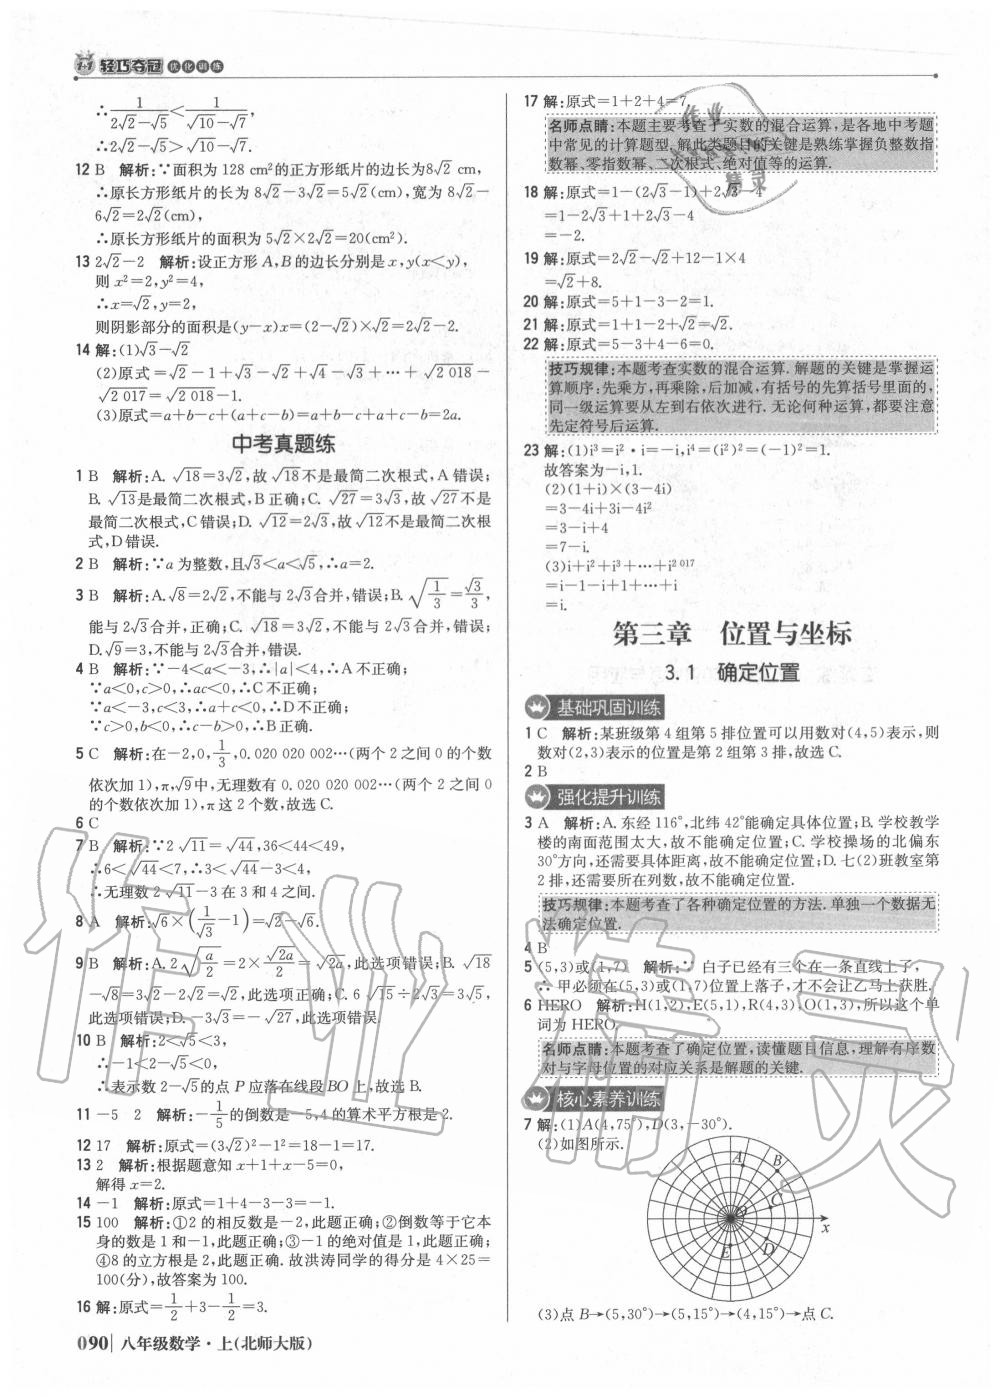 1+1 轻巧夺冠 优化训练
∴1/(2√2−√5)<1/(√10−√7),
∴2√2−√5>√10−√7.
12 B 解析:∵面积为 128 cm²的正方形纸片的边长为8√2 cm,
∴原长方形纸片的长为 8√2−3√2=5√2(cm),宽为 8√2−
6√2=2√2(cm),
∴原长方形纸片的面积为 5√2×2√2=20(cm²).
13 2√2−2 解析:设正方形 A,B 的边长分别是 x,y(x<y),
则 x²=2,y²=4,
∴x=√2,y=2,
则阴影部分的面积是(y−x)x=(2−√2)×√2=2√2−2.
14 解:(1)√3−√2
(2)原式=√2−1+√3−√2+√4−√3+⋯+√2 018−
√2 017=√2 018−1.
(3)原式=a+b−c+(a+c−b)=a+b−c+a+c−b=2a.
中考真题练
1 B 解析:A. √18=3√2,故√18不是最简二次根式,A 错误;
B. √13是最简二次根式,B 正确;C. √27=3√3,故√27不是
最简二次根式,C 错误;D. √12=2√3,故√12不是最简二次根
式,D 错误.
2 B 解析:∵a 为整数,且√3<a<√5,∴a=2.
3 B 解析:A.√8=2√2,不能与 2√3合并,错误;B. √(1/3)=√3/3,
能与 2√3合并,正确;C. √18=3√2,不能与 2√3合并,错误;
D.√9=3,不能与 2√3合并,错误.
4 B 解析:∵−4<a<−3,∴|a|<4,∴A 不正确;
∵a<0,c>0,∴ac<0,∴C 不正确;
∵a<−3,c<3,∴a+c<0,∴D 不正确;
∵c>0,b<0,∴c−b>0,∴B 正确.
5 C 解析:在−2,0,1/3,0.020 020 002⋯(两个 2 之间 0 的个数
依次加 1),π,√9中,无理数有 0.020 020 002⋯(两个 2 之间 0
的个数依次加 1),π 这 2 个数,故选 C.
6 C
7 B 解析:∵2√11=√44,36<44<49,
∴6<√44<7,∴3<√44−3<4,
∴无理数 2√11−3 在 3 和 4 之间.
8 A 解析:√6×(1/√3−1)=√2−√6.
9 B 解析:A. 2√(a/2)=2×√2a/2=√2a,此选项错误;B. √18
−√8=3√2−2√2=√2,此选项正确;C. 6√15÷2√3=3√5,
此选项错误;D.−3√3=−√27,此选项错误.
10 B 解析:2<√5<3,
∴−1<2−√5<0,
∴表示数 2−√5的点 P 应落在线段BO 上,故选 B.
11 −5 2 解析:−1/5的倒数是−5,4 的算术平方根是 2.
12 17 解析:原式=(3√2)²−1²=18−1=17.
13 2 解析:根据题意知 x+1+x−5=0,
解得 x=2.
14 −1 解析:原式=1+4−3−3=−1.
15 100 解析:①2 的相反数是−2,此题正确;②倒数等于它本
身的数是 1 和−1,此题正确;③−1 的绝对值是 1,此题正确;
④8 的立方根是 2,此题正确. 故洪涛同学的得分是 4×25=
100(分),故答案为 100.
16 解:原式=1/2+3−1/2=3.
090 八年级数学·上(北师大版)
17 解:原式=1+2+4=7.
名师点睛:本题主要考查了实数的混合运算,是各地中考题
中常见的计算题型. 解此类题目的关键是熟练掌握负整数指
数幂、零指数幂、二次根式、绝对值等的运算.
18 解:原式=1−(2√3−1)+2√3−4
=1−2√3+1+2√3−4
=−2.
19 解:原式=2√2−√2+12−1×4
=√2+8.
20 解:原式=5+1−3−2=1.
21 解:原式=1+1−2+√2=√2.
22 解:原式=5−3+4−6=0.
技巧规律:本题考查实数的混合运算. 解题的关键是掌握运
算顺序:先乘方,再乘除,后加减,有括号的先算括号里面的,
同一级运算要从左到右依次进行. 无论何种运算,都要注意
先定符号后运算.
23 解:(1)i³=i²·i=−i,i⁴=(i²)²=(−1)²=1.
故答案为−i,1.
(2)(1+i)×(3−4i)
=3−4i+3i−4i²
=3−i+4
=7−i.
(3)i+i²+i³+⋯+i²⁰¹⁷
=i−1−i+1+⋯+i
=i.
第三章 位置与坐标
3.1 确定位置
基础巩固训练
1 C 解析:某班级第 4 组第 5 排位置可以用数对(4,5)表示,则
数对(2,3)表示的位置是第 2 组第 3 排,故选 C.
2 B
强化提升训练
3 A 解析:A. 东经 116°,北纬 42°能确定具体位置;B. 学校教学
楼的南面范围太大,故不能确定位置;C. 学校操场的北偏东
30°方向,还需要具体距离,故不能确定位置;D. 七(2)班教室第
2 排,还需要所在列数,故不能确定位置.
技巧规律:本题考查了各种确定位置的方法. 单独一个数据无
法确定位置.
4 B
5 (5,3)或(1,7) 解析:∵ 白子已经有三个在一条直线上了,
∴ 甲必须在(5,3)或(1,7)位置上落子,才不会让乙马上获胜.
6 HERO 解析:H(1,2),E(5,1),R(4,3),O(1,3),所以这个单
词为 HERO.
名师点睛:本题考查了确定位置,读懂题目信息,理解有序数
对与字母位置的对应关系是解题的关键.
核心素养训练
7 解:(1)A(4,75°),D(3,−30°).
(2)如图所示.
A B C O x E D
(3)点 B→(5,30°)→(5,15°)→(4,15°)→点 C.
作业精灵